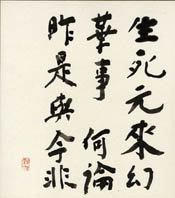 生死元來幻
華事 何論
昨是與今非